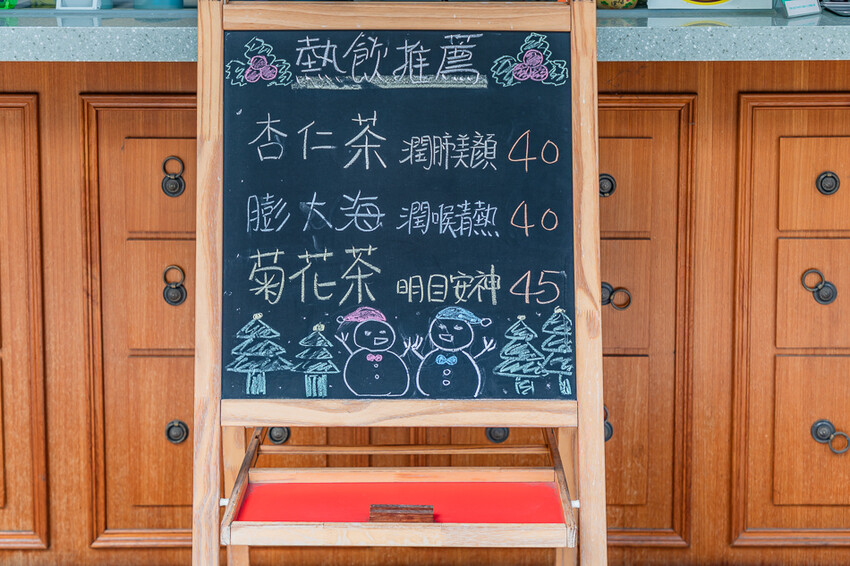 熱飲推薦
杏仁茶 潤肺美顏 40
膨大海 潤喉清熱 40
菊花茶 明目安神 45